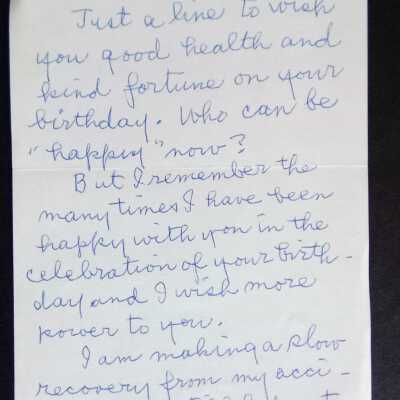 Just a line to wish
you good health and
kind fortune on your
birthday. Who can be
"happy" now?
But I remember the
many times I have been
happy with you in the
celebration of your birth-
day and I wish more
power to you.
I am making a slow
recovery from my acci-